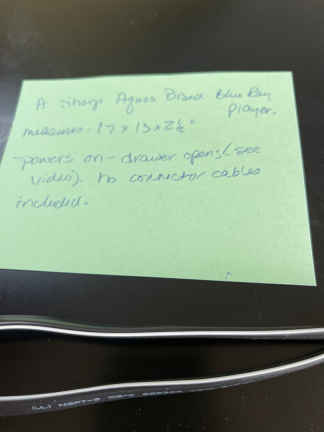 A Sharp Aquos Brand Blue Ray
Player.
measures - 17 x 13 x 2½"
-powers on - drawer opens (see
video). No connector cables
included.